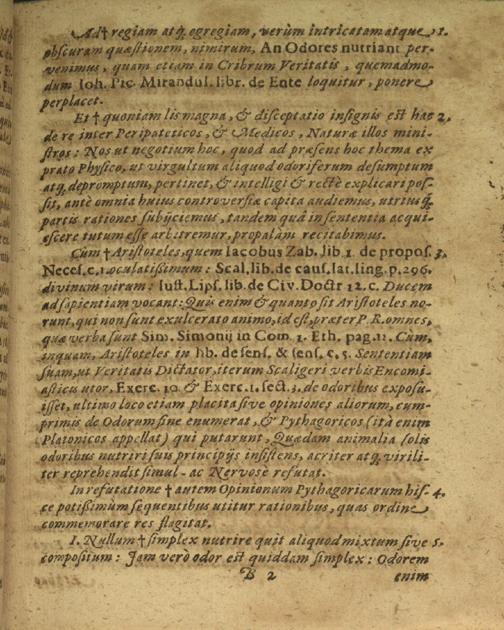 Ad† regiam atq́; egregiam, verùm intricatam atque 1.
obscuram quæstionem, nimirum, An Odores nutriant per-
venimus, quam etiam in Cribrum Veritatis, quemadmo-
dum Ioh. Pic. Mirandul. libr. de Ente loquitur, ponere
perplacet.
Et † quoniam lis magna, & disceptatio insignis est hac 2.
de re inter Peripateticos, & Medicos, Naturæ illos mini-
stros: Nos ut negotium hoc, quod ad præsens hoc thema ex
prato Physico, ut virgultum aliquod odoriferum desumptum
atq́; depromptum, pertinet, & intelligi & rectè explicari pos-
sit, antè omnia huius controversiæ capita audiemus, utriusq́;
partis rationes subjiciemus, tandem quâ in sententia acqui-
escere tutum esse arbitremur, propalàm recitabimus.
Cum † Aristoteles, quem Iacobus Zab. lib 1. de propos. 3.
Neces. c. 1. oculatissimum: Scal. lib. de caus. lat. ling. p. 296.
divinum virum: Iust. Lips. lib. de Civ. Doctr 12. Ducem
ad sapientiam vocant: Quis enim & quanto sit Aristoteles no-
runt, qui non sunt exulcerato animo, id est, præter P. R. omnes,
quæ verba sunt Sim. Simonij in Com 1. Eth. pag. 11. Cum,
inquam, Aristoteles in lib. de sens. & sens. c. 5. Sententiam
suam, ut Veritatis Dictator, iterum Scaligeri verbis Encomi-
asticis utor. Exerc. 10 & Exerc. 1. sect. 3. de odoribus exposu-
isset, ultimo loco etiam placita sive opiniones aliorum, cum-
primis de Odorum fine enumerat, & Pythagoricos (ità enim
Platonicos appellat) qui putarunt, Quædam animalia solis
odoribus nutriri suis principijs insistens, acriter atq́; virili-
ter reprehendit simul- ac Nervose refutat.
In refutatione † autem Opinionum Pythagoricarum his- 4.
ce potissimùm sequentibus utitur rationibus, quas ordine
commemorare res flagitat.
I. Nullum † simplex nutrire quit aliquod mixtum sive 5.
compositum: Jam verò odor est quiddam simplex: Odorem
B 2 enim